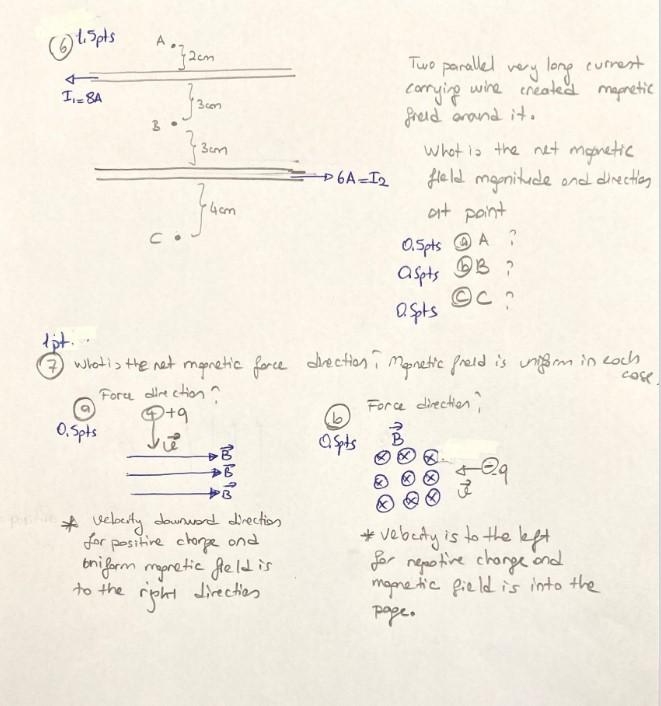 6 1.5pts
A
2cm
I₁=8A
3cm
B
3cm
6A=I₂
4cm
C
Two parallel very long current
carrying wire created magnetic
field around it.
What is the net magnetic
field magnitude and direction
at point
0.5pts a A ?
0.5pts b B ?
0.5pts c C ?
1pt.
7 What is the net magnetic force direction? Magnetic field is uniform in each
case.
a Force direction?
0.5pts
+q
v
B
B
B
* velocity downward direction
for positive charge and
uniform magnetic field is
to the right direction
b Force direction?
0.5pts
B
-q
v
* velocity is to the left
for negative charge and
magnetic field is into the
page.